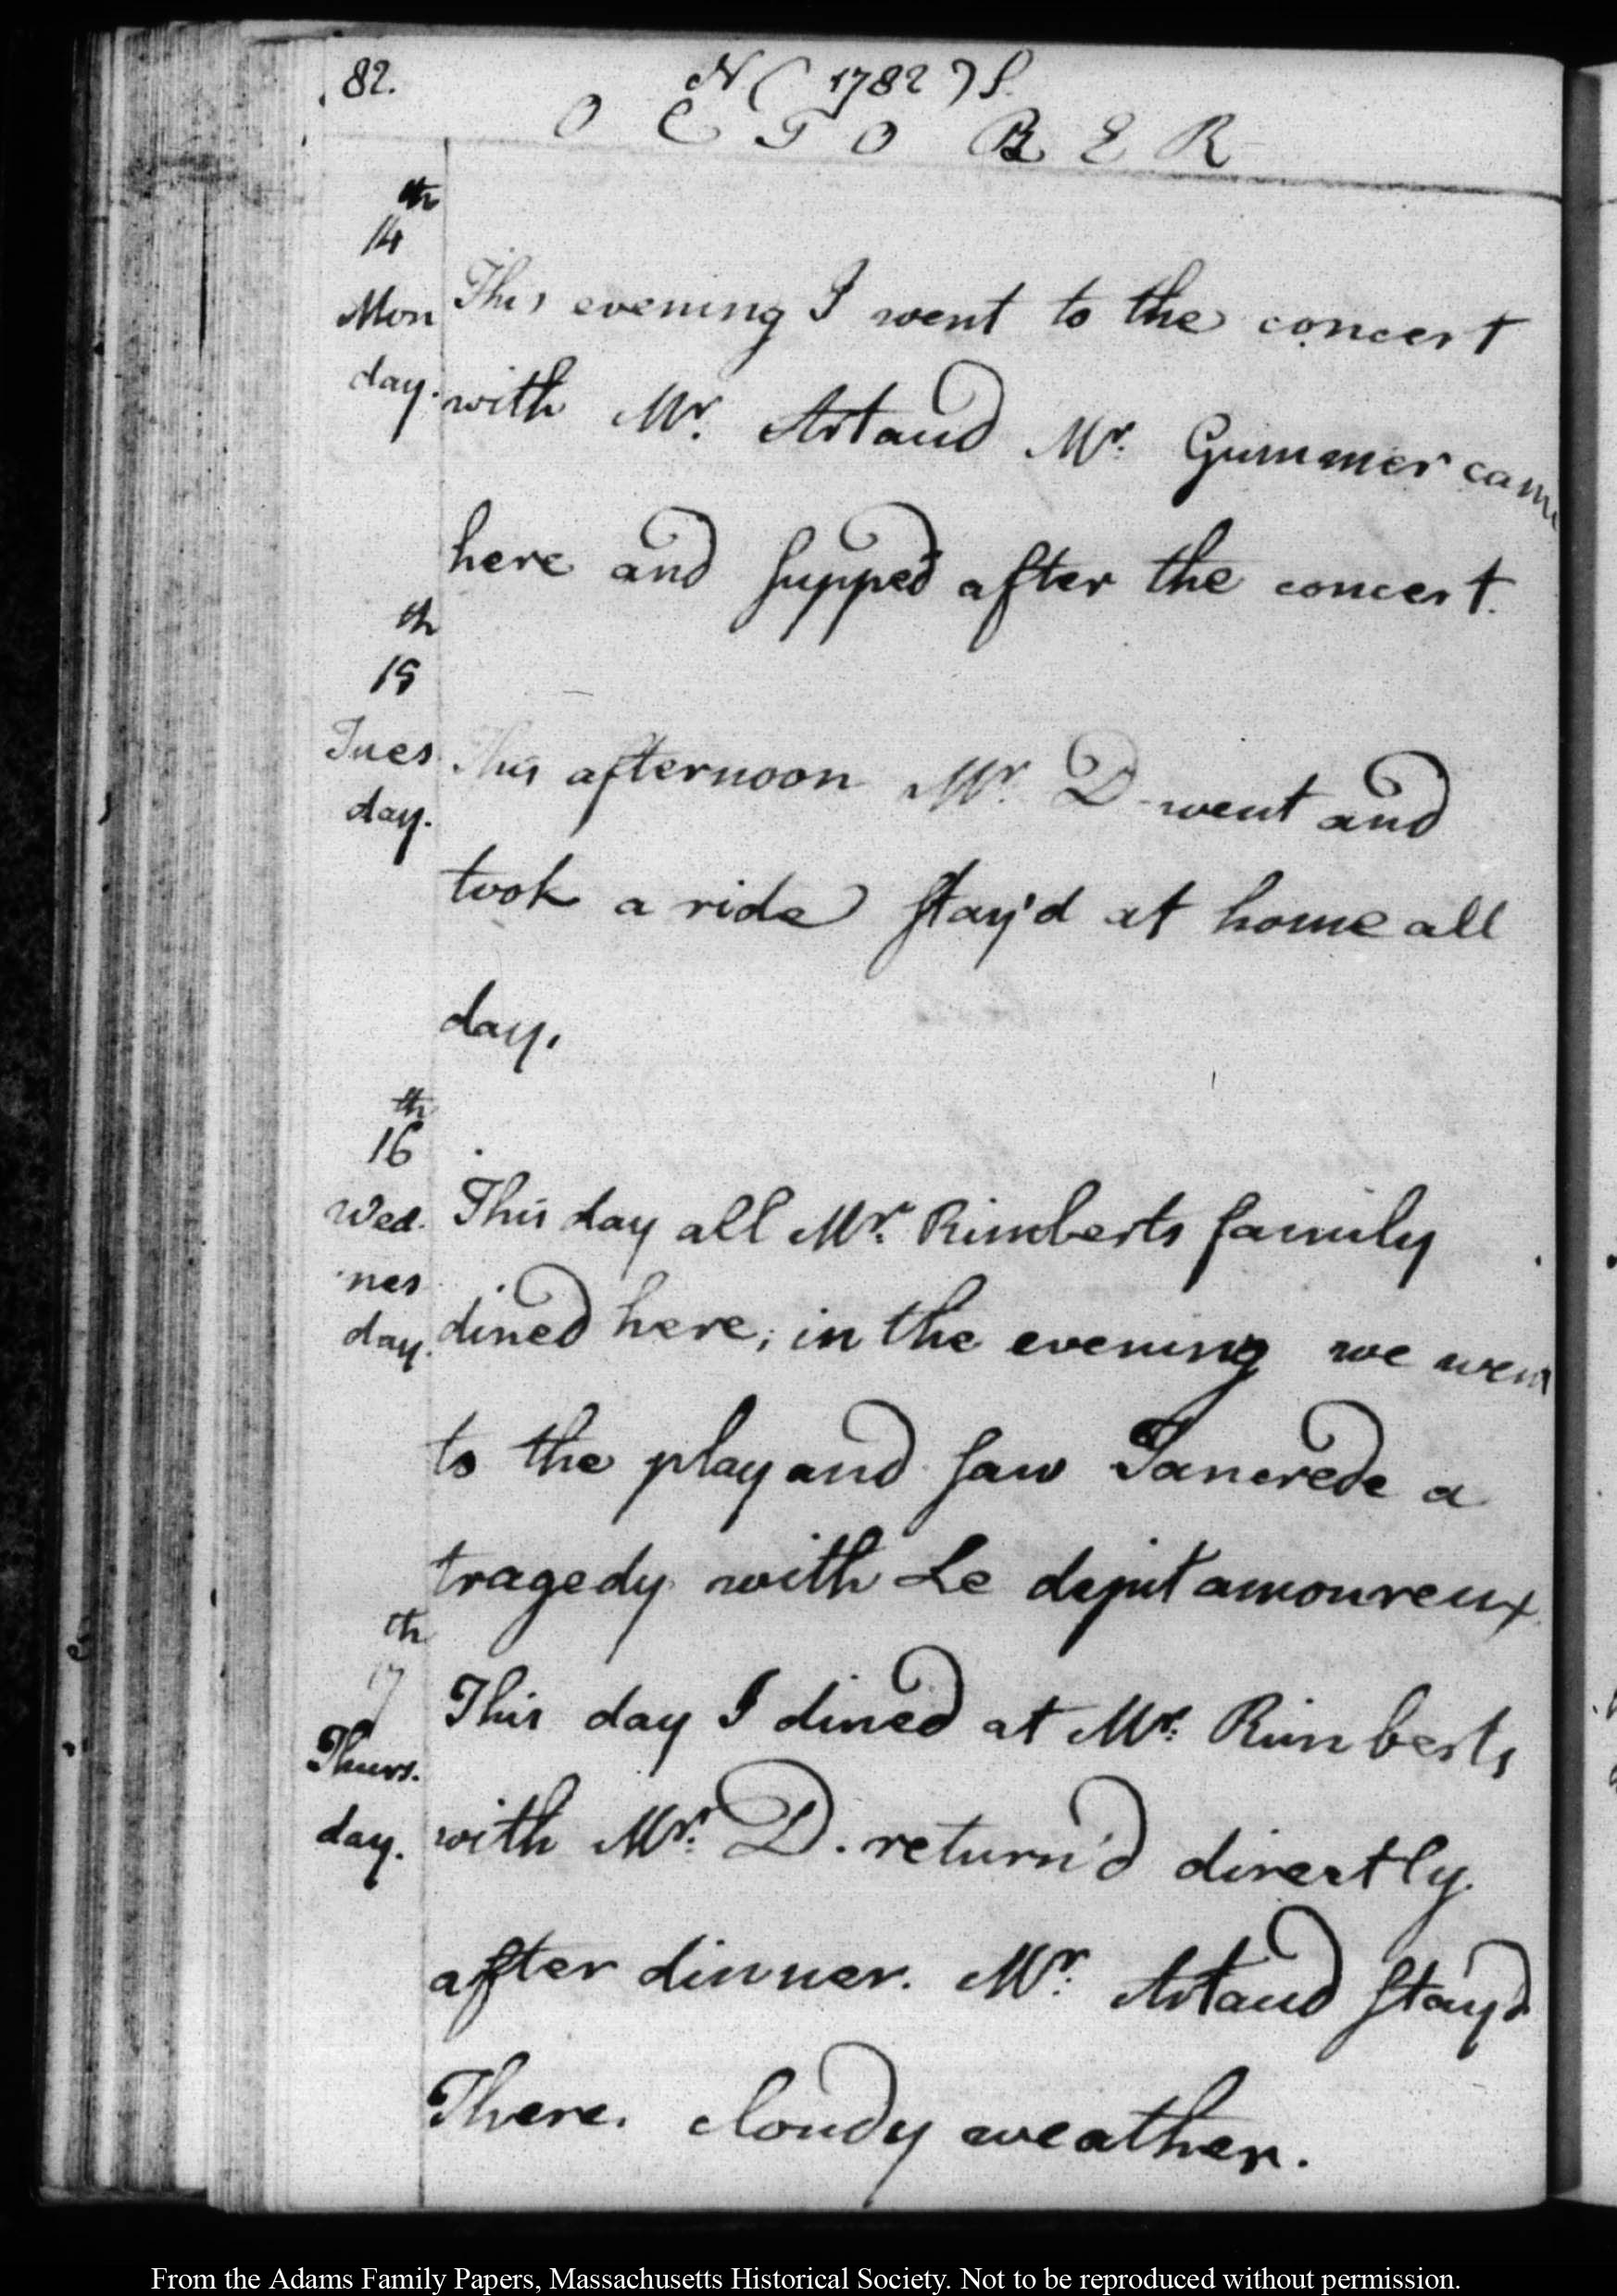 82.
N ( 1782 ) S.
OCTOBER
th
14
Mon
day.
This evening I went to the concert
with Mr. Artaud Mr. Gummer came
here and supped after the concert.
th
15
Tues
day.
This afternoon Mr. D went and
took a ride stay'd at home all
day.
th
16
Wed.
nes
day.
This day all Mr. Rimberts family
dined here; in the evening we went
to the play and saw Tancrede a
tragedy with Le depit amoureux
th
17
Thurs.
day.
This day I dined at Mr. Rimberts
with Mr. D. return'd directly
after dinner. Mr. Artaud stay'd
There. cloudy weather.
From the Adams Family Papers, Massachusetts Historical Society. Not to be reproduced without permission.